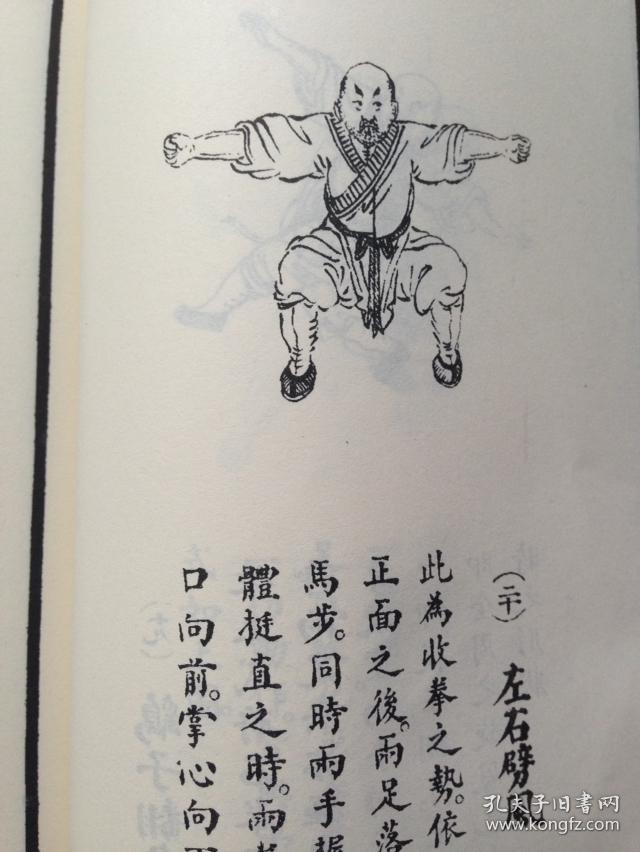 (二十) 左右劈風
此為收拳之勢。依
正面之後。兩足落
馬步。同時兩手握
體挺直之時。兩
口向前。掌心向
孔夫子旧书网
www.kongfz.com